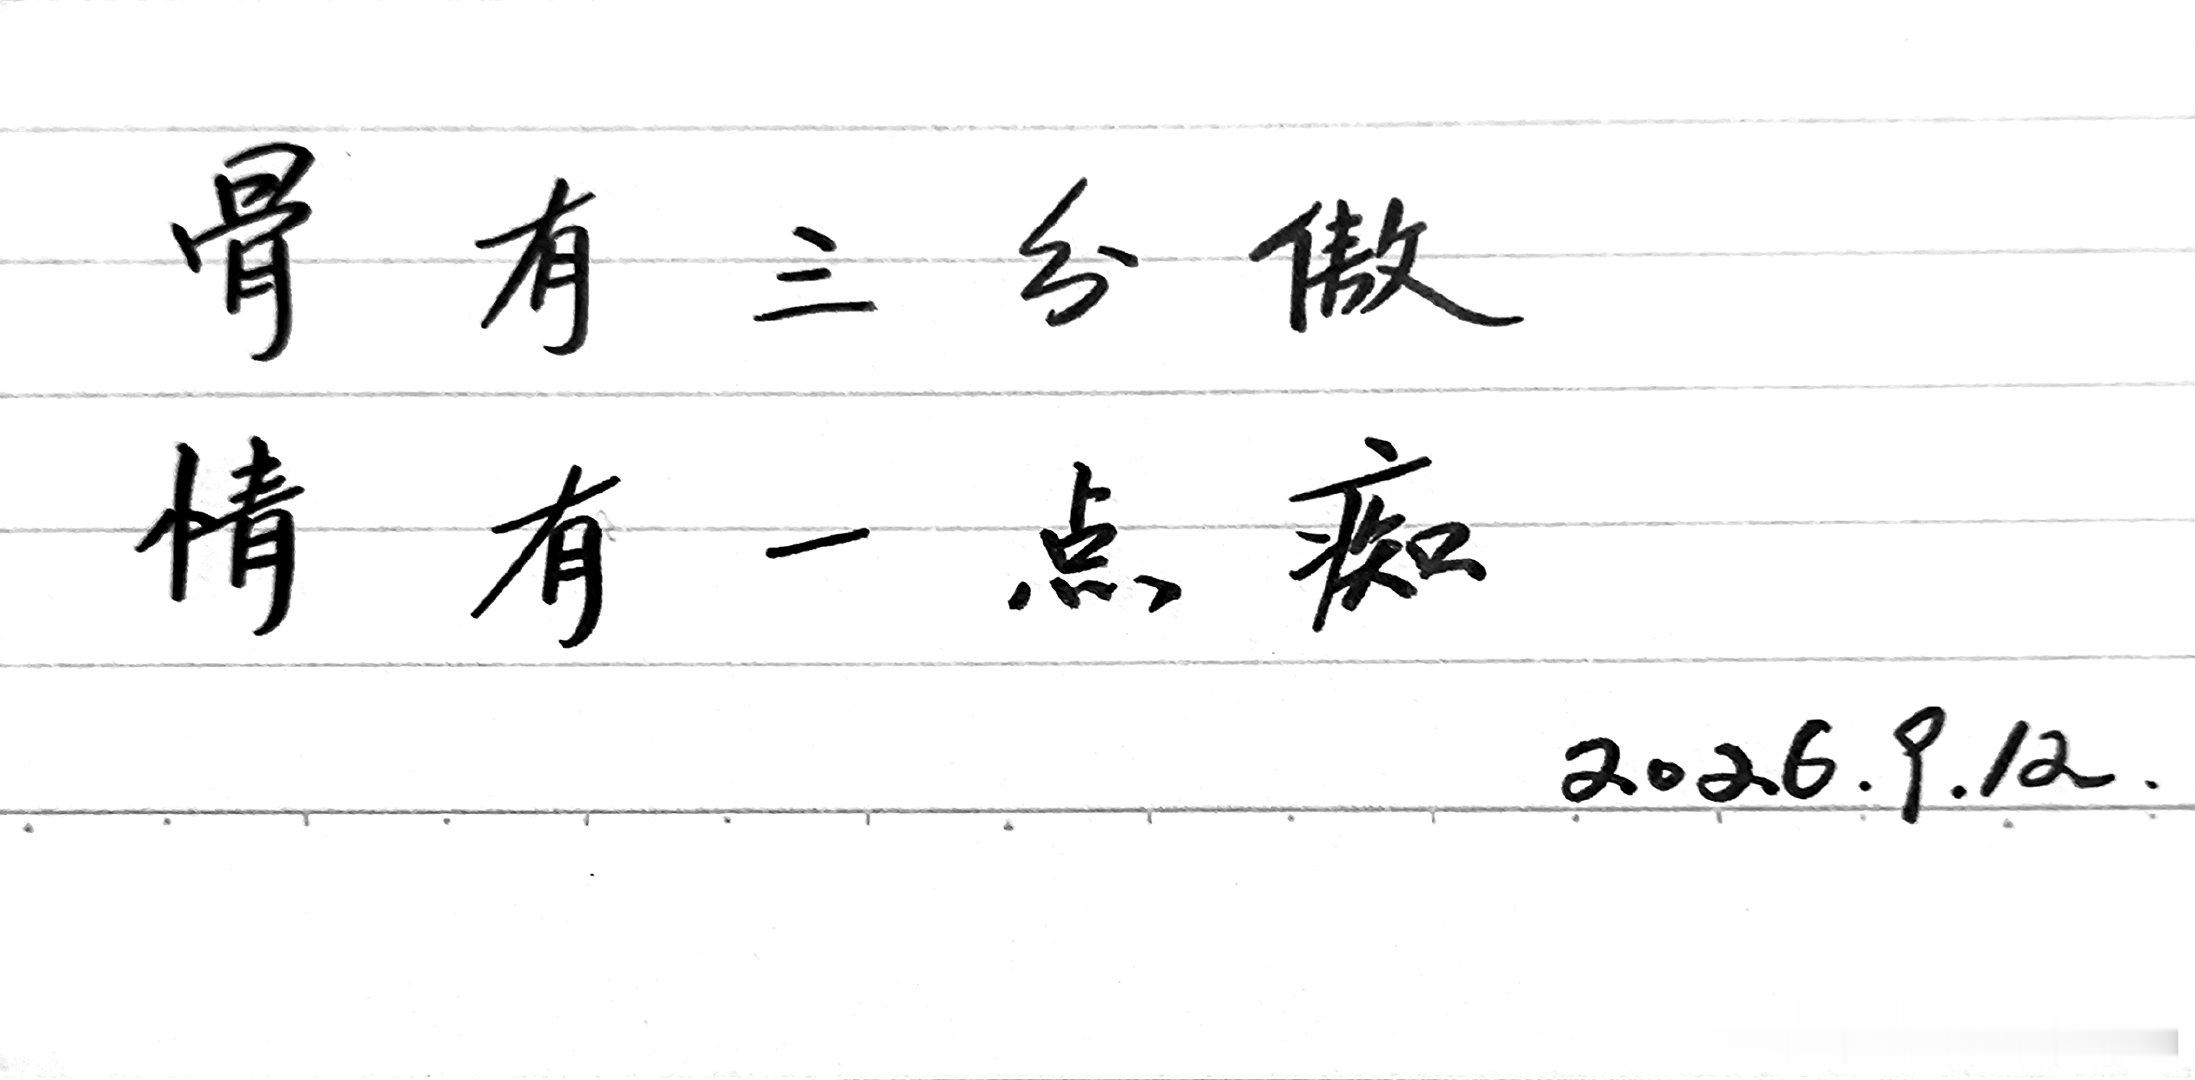 骨有三分傲
情有一点痴
2026.9.12.